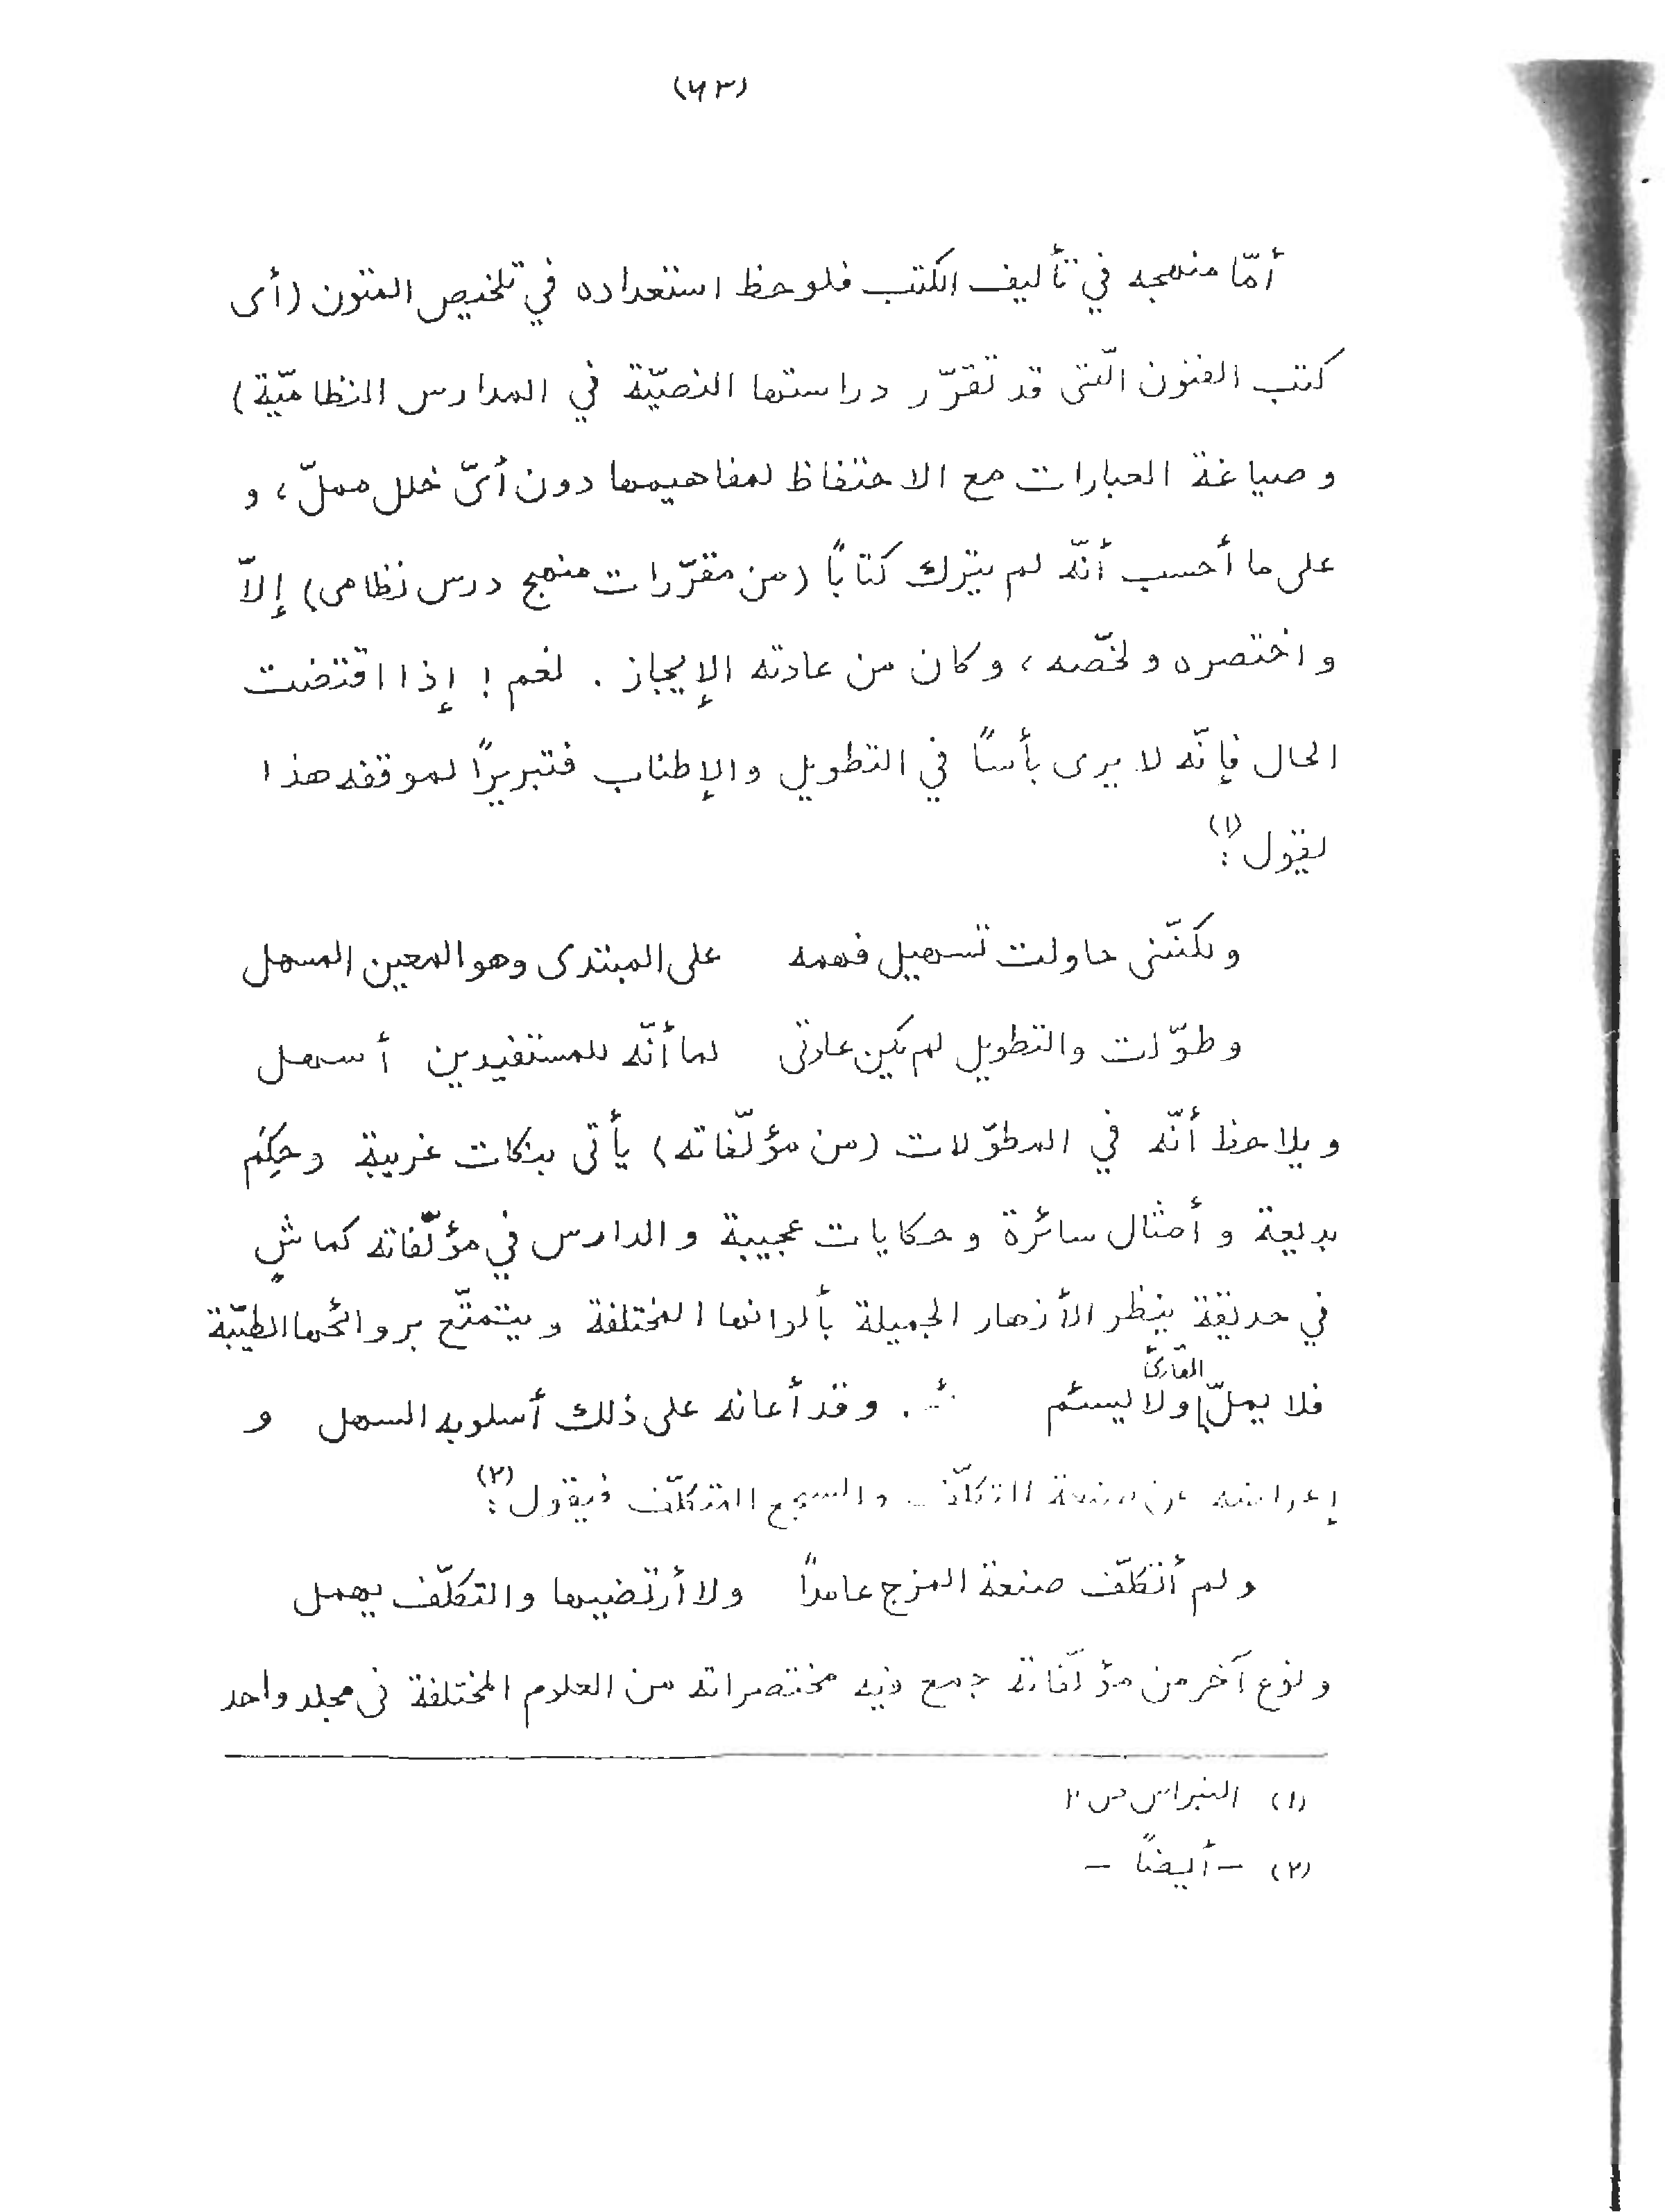 (٦٣)
أمّا منهجه في تأليف الكتب فلوحظ استعداده في تلخيص المتون (أى
كتب الفنون الّتى قد تقرّر دراستها النصيّة في المدارس النظاميّة)
و صياغة العبارات مع الاحتفاظ لمفاهيمها دون أىّ خلل مملّ، و
على ما أحسب أنّه لم يترك كتابًا (من مقرّرات منهج درس نظامى) إلاّ
و اختصره ولخّصه، وكان من عادته الإيجاز. نعم! إذا اقتضت
الحال فإنّه لا يرى بأسًا في التطويل والإطناب فتبريرًا لموقفه هذا
يقول(١):
ولكنّنى حاولت تسهيل فهمه على المبتدى وهو المعين المسهل
وطوّلت والتطويل لم يكن عادتى لما أنّه للمستفيدين أسهل
ويلاحظ أنّه في المطوّلات (من مؤلّفاته) يأتى بنكات غريبة وحِكَم
بديعة و أمثال سائرة وحكايات عجيبة والدارس في مؤلّفاته كماشٍ
في حديقة ينظر الأزهار الجميلة بألوانها المختلفة ويتمتّع بروائحها الطيّبة
فلا يملّ القارئ ولا يسئم . وقد أعانه على ذلك أسلوبه السهل و
إعراضه عن صنعة التكلّف والسجع المتكلّف فيقول(٢):
ولم أتكلّف صنعة المزج عامدًا ولا أرتضيها والتكلّف يهمل
ونوع آخر من مؤلّفاته جمع فيه مختصراته من العلوم المختلفة فى مجلد واحد
(١) النبراس ص ٢
(٢) - أيضًا -